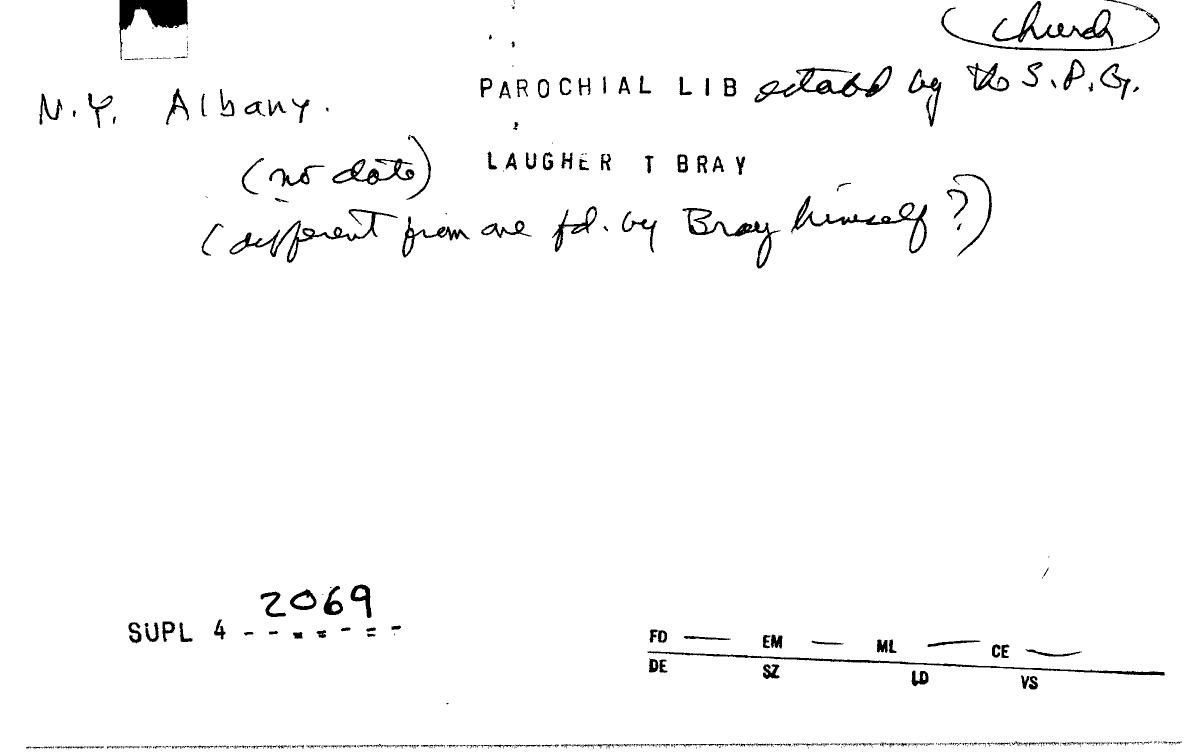 church
N.Y. Albany. PAROCHIAL LIB estabd by the S.P.G.
(no date) LAUGHER T BRAY
(different from one fd. by Bray himself?)
SUPL 4 2069
FD — EM — ML — CE —
DE SZ LD VS